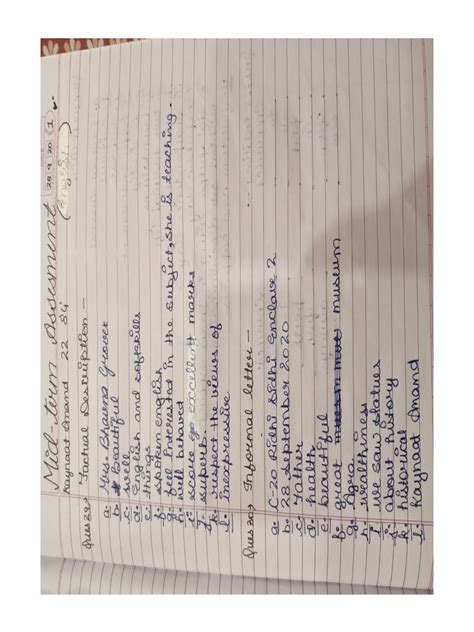 Mid-term Assesment 28 9 20 1
Kaynaat Anand 22 84 (English)
Ques 29) Factual Description —
a. Mrs. Bhavna Grover
b. beautiful
c. smile
d. English and softskills
e. things
f. spoken english
g. feel interested in the subject, she is teaching.
h. well behaved
i. score go excellent marks
j. superb
k. respect the views of
l. inexpressive
Ques 30) Informal letter —
a. C-20 Ridhi Sidhi Enclave 2
b. 28 September 2020
c. Father
d. health
e. beautiful
f. great museum
g. Agra
h. wealthiness
i. we saw statues
j. about history
k. historical
l. Kaynaat Anand